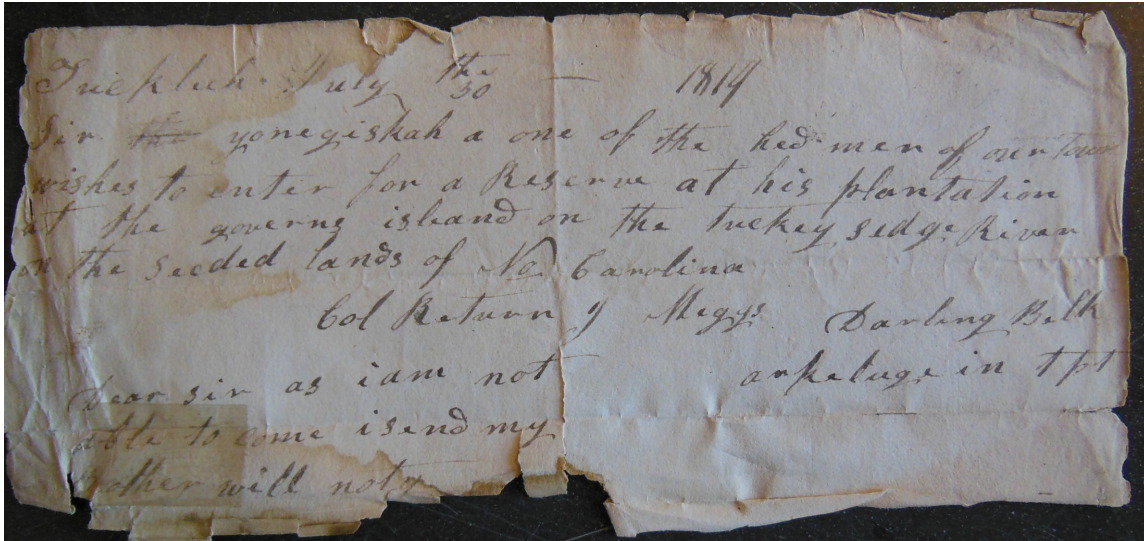 Tuckluh July the 30 — 1819
Sir the yonegiskah a one of the hed men of our town
wishes to enter for a Reserve at his plantation
at the governs island on the Tuckey sedge River
on the seeded lands of No Carolina
Col Return J Megys Darling Belk
Dear sir as iam not in
able to come isend my
Brother will noty